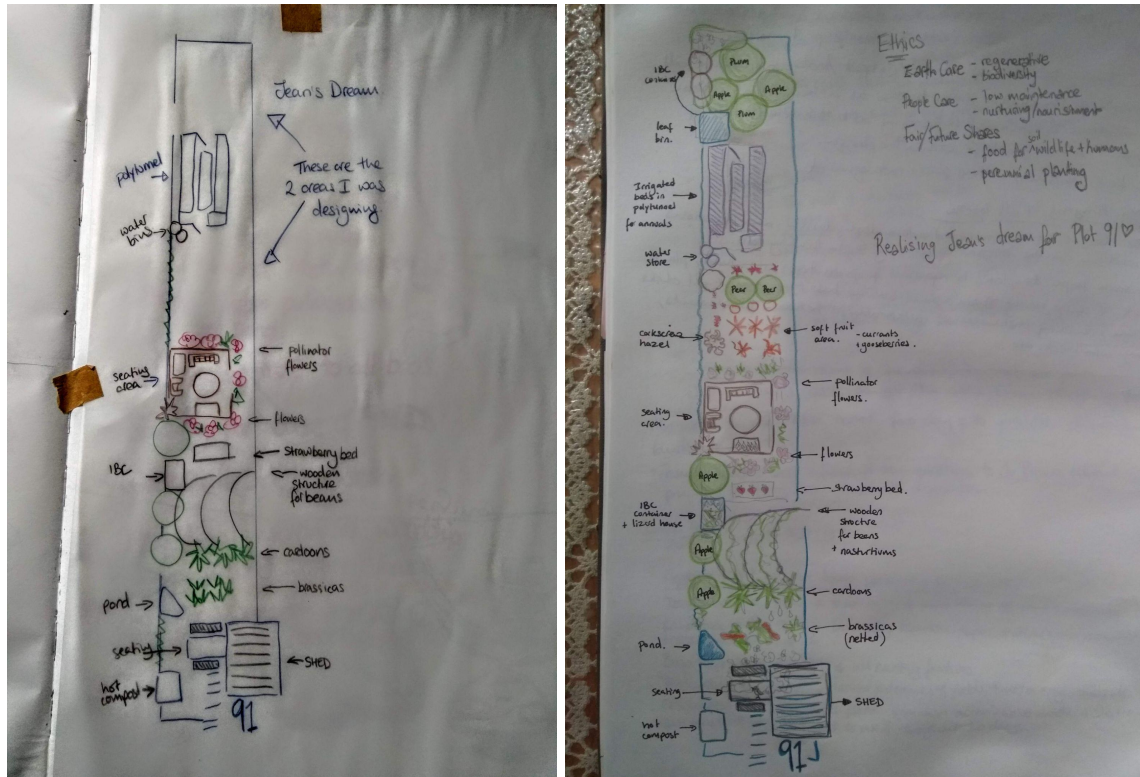 Jean's Dream
These are the
2 areas I was
designing.
polytunnel
water
bins
seating
area
pollinator
flowers
flowers
IBC
strawberry bed
wooden
structure
for beans
cardoons
brassicas
pond
seating
SHED
hot
compost
91
Ethics
Earth Care - regenerative
- biodiversity
People Care - low maintenance
- nurturing/nourishment
Fair/Future Shares
- food for soil wildlife + humans
- perennial planting
Realising Jean's dream for Plot 91♡
IBC
Plum
Apple
Apple
Plum
leaf
bin.
Irrigated
beds in
polytunnel
for annuals
water
store
Pear
Pear
corkscrew
hazel
soft fruit
area. - currants
+ gooseberries.
pollinator
flowers.
seating
area.
flowers
Apple
strawberry bed.
IBC
container
+ lizard house
wooden
structure
for beans
+ nasturtiums
Apple
Apple
cardoons
brassicas
(netted)
pond.
seating
SHED
hot
compost
91